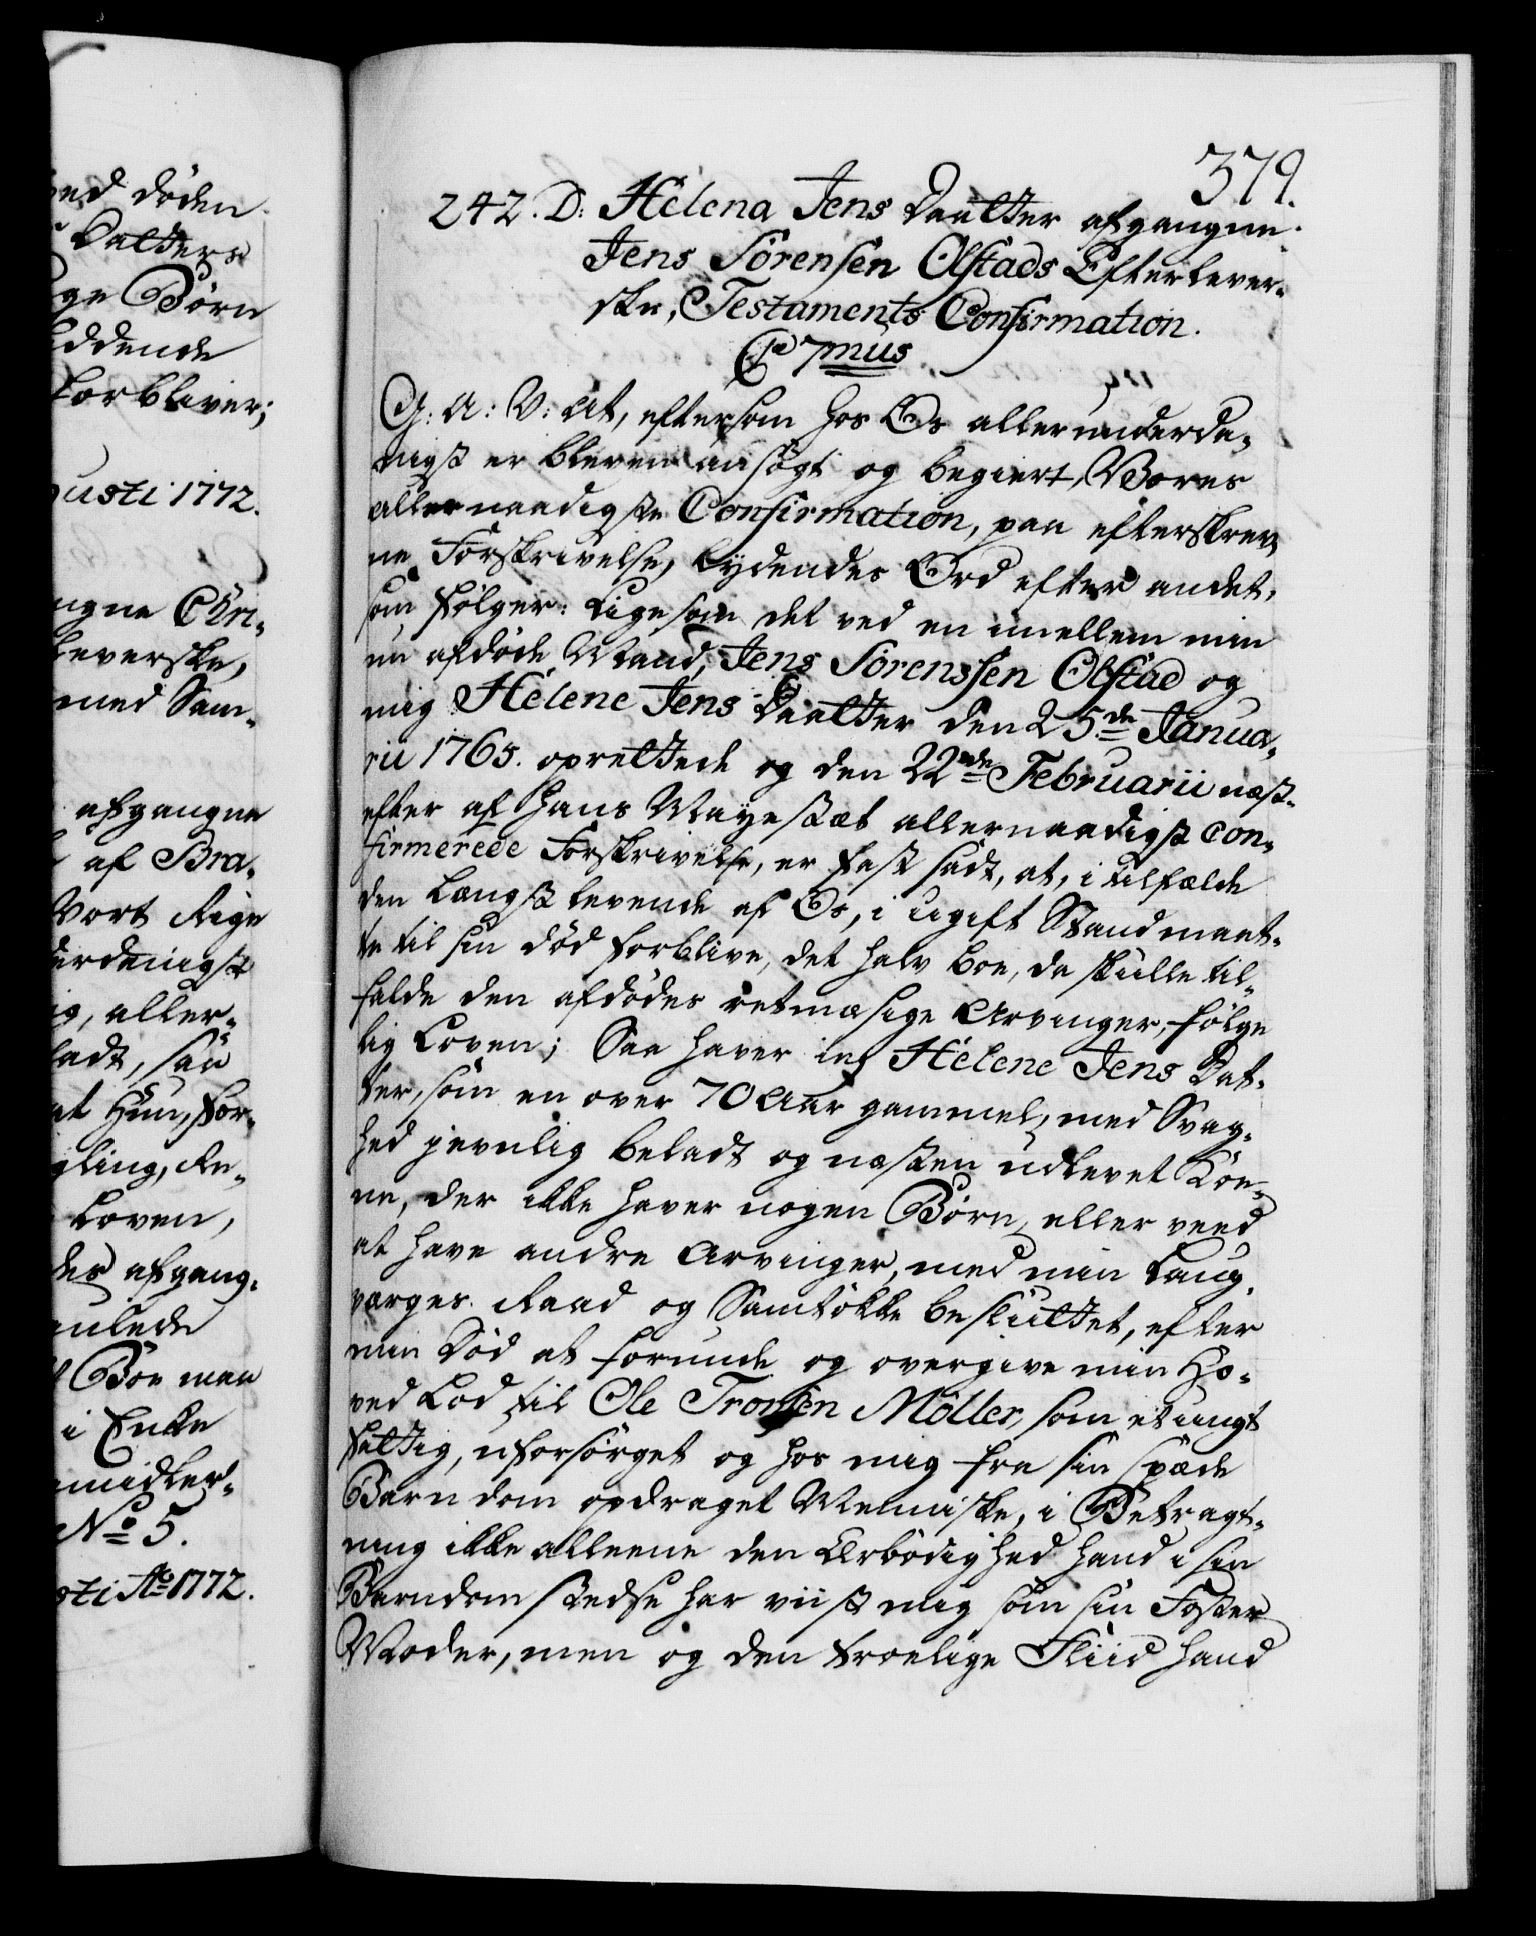 ved Døden
Datters
ge Børn
ddende
forbliver;
usti 1772.
ngne Chri-
leverske,
med Sam-
afgangne
af Bra-
Vort Rige
erdanigst
ig, aller-
ladt, saa
at Hun, for-
gling, Re-
Loven,
des afgang-
mlede
Boe maa
i Enke
midler-
No 5.
sti Ao 1772.
379.
242. D: Helena Jens Daatter afgangne
Jens Sörensen Olstads Efterlever-
ske, Testaments Confirmation.
C 7mus
G: A: V: At, eftersom hos Os allerunderda-
nigst er bleven ansøgt og begiert, Vores
allernaadigste Confirmation, paa efterskrev-
ne Forskrivelse, lydendes Ord efter andet,
som følger: Ligesom det ved en imellem min
nu afdøde Mand, Jens Sörenssen Olstad og
mig Helene Jens Daatter den 25de Janua-
rii 1765. oprettede og den 22nde Februarii næst-
efter af Hans Mayestæt allernaadigst con-
firmerede Forskrivelse, er fast sadt, at, i tilfælde
den Længst levende af Os, i ugift Stand maat-
te til sin død forblive, det halv boe, da skulle til-
falde den afdødes retmæsige Arvinger, følge-
lig Loven; Saa haver ieg Helene Jens Dat-
ter, som en over 70 Aar gammel, med Svag-
hed jevnlig beladt og næsten udlevet Kon-
ne, der ikke haver nogen Børn, eller veed
at have andre Arvinger, med min Laug-
værges Raad og Samtøkke besluttet, efter
min Død at forunde og overgive min Ho-
ved Lod til Ole Tronsen Möller, som et ungt
fattig, uforsörget og hos mig fra sin spæde
Barndom opdraget Menniske, i Betragt-
ning ikke alleene den Ærbødighed hand i sin
Barndom stedse har viist mig som sin Foster
Moder, men og den troelige Fliid hand